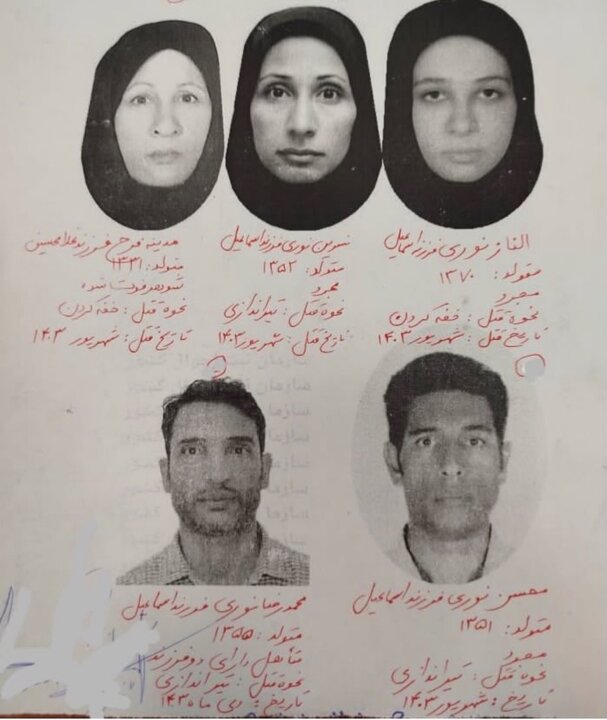 الناز نوری فرزند اسماعیل
متولد: ۱۳۷۰
مجرد
نحوه قتل: خفه کردن
تاریخ قتل: شهریور ۱۴۰۳
نسرین نوری فرزند اسماعیل
متولد: ۱۳۵۳
مجرد
نحوه قتل: تیراندازی
تاریخ قتل: شهریور ۱۴۰۳
مدینه فرخ فرزند غلامحسین
متولد: ۱۳۳۱
شوهر فوت شده
نحوه قتل: خفه کردن
تاریخ قتل: شهریور ۱۴۰۳
محسن نوری فرزند اسماعیل
متولد: ۱۳۵۱
مجرد
نحوه قتل: تیراندازی
تاریخ: شهریور ۱۴۰۳
محمدرضا نوری فرزند اسماعیل
متولد: ۱۳۵۵
متأهل دارای دو فرزند
نحوه قتل: تیراندازی
تاریخ: دی ماه ۱۴۰۳